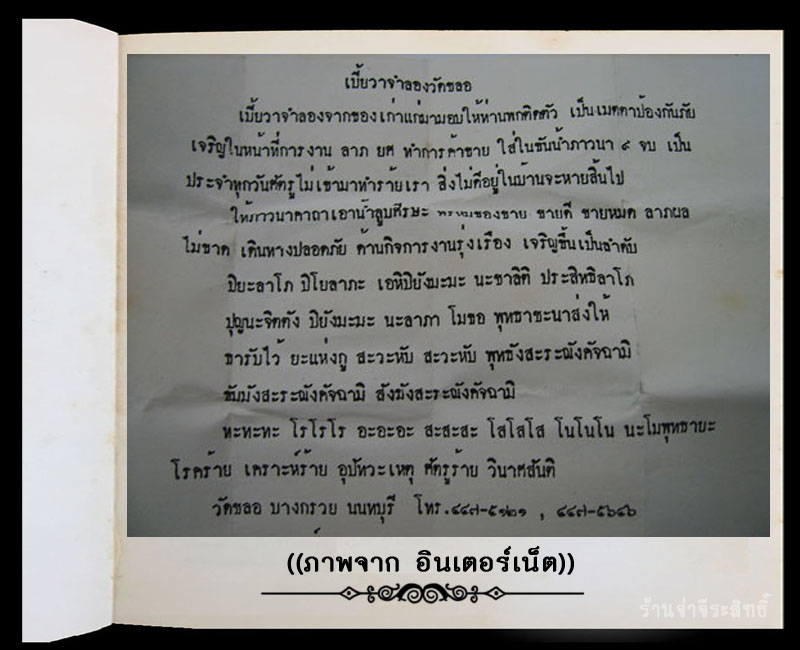 เบี้ยวาจำลองวัดชลอ
เบี้ยวาจำลองจากของเก่าแก่มามอบให้ท่านพกติดตัว เป็นเมตตาป้องกันภัย
เจริญในหน้าที่การงาน ลาภ ยศ ทำการค้าขาย ใส่ในขันน้ำภาวนา ๙ จบ เป็น
ประจำทุกวันศัตรูไม่เข้ามาทำร้ายเรา สิ่งไม่ดีอยู่ในบ้านจะหายสิ้นไป
ให้ภาวนาคาถาเอาน้ำลูบศีรษะ ของขาย ขายดี ขายหมด ลาภผล
ไม่ขาด เดินทางปลอดภัย ด้านกิจการงานรุ่งเรือง เจริญขึ้นเป็นลำดับ
ปิยะลาโภ ปิโยลาภะ เอหิปิยังมะมะ นะชาลิติ ประสิทธิลาโภ
ปุญนะจิตตัง ปิยังมะมะ นะลาภา โมขอ พุทธาชะนาส่งให้
ธารับไว้ ยะแห่งกู สะวะหับ สะวะหับ พุทธังสะระณังคัจฉามิ
ธัมมังสะระณังคัจฉามิ สังฆังสะระณังคัจฉามิ
หะหะหะ โรโรโร อะอะอะ สะสะสะ โสโสโส โนโนโน นะโมพุทธายะ
โรคร้าย เคราะห์ร้าย อุปัทวะเหตุ ศัตรูร้าย วินาศสันติ
วัดชลอ บางกรวย นนทบุรี โทร.๔๔๗-๕๑๒๑ , ๔๔๗-๕๖๔๖
((ภาพจาก อินเตอร์เน็ต))
ร้านจ่าจีระสิทธิ์